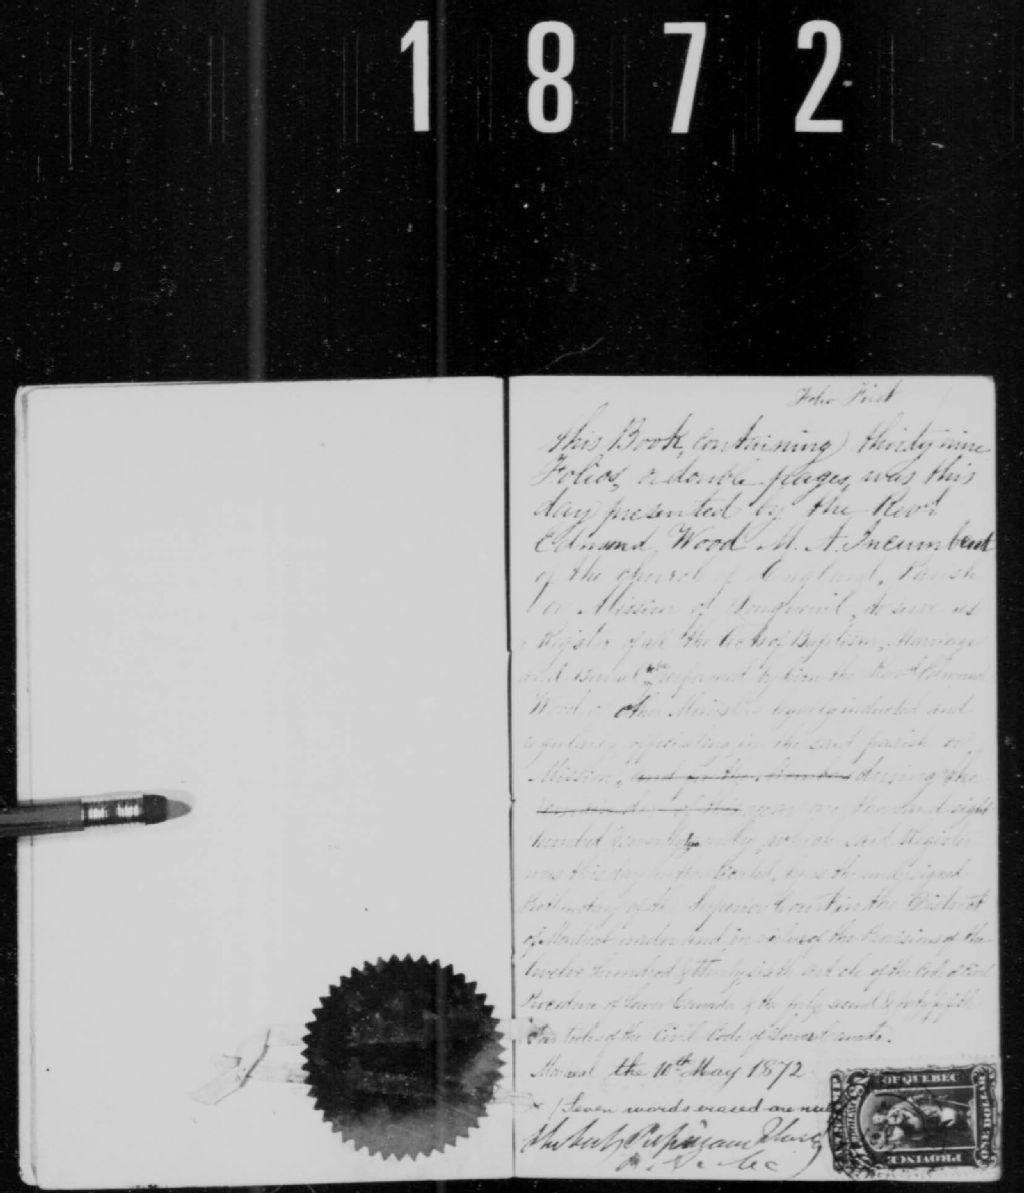 1872
Folio First
This Book, containing thirty nine
Folios, or double pages, was this
day presented by the Revd
Edmund Wood M. A. Incumbent
of the Church of England, Parish
or Mission of Longueuil, to serve as
a Register of all the Acts of Baptism, Marriage
and Burial to be performed by him the Revd Edmund
Wood or other Ministers legally inducted and
regularly officiating in the said parish or
Mission, during the
year one thousand eight
hundred & seventy two, which said Register
was this day authenticated, by us the undersigned
Prothonotary of the Superior Court in the District
of Montreal under and in virtue of the Provisions of the
twelve hundred & thirty sixth article of the Code of Civil
Procedure of Lower Canada & the forty second & forty fifth
Articles of the Civil Code of Lower Canada.
Montreal the 10th May 1872
x/ Seven words erased are null
Hubert Papineau
PROVINCE OF QUEBEC
ONE DOLLAR